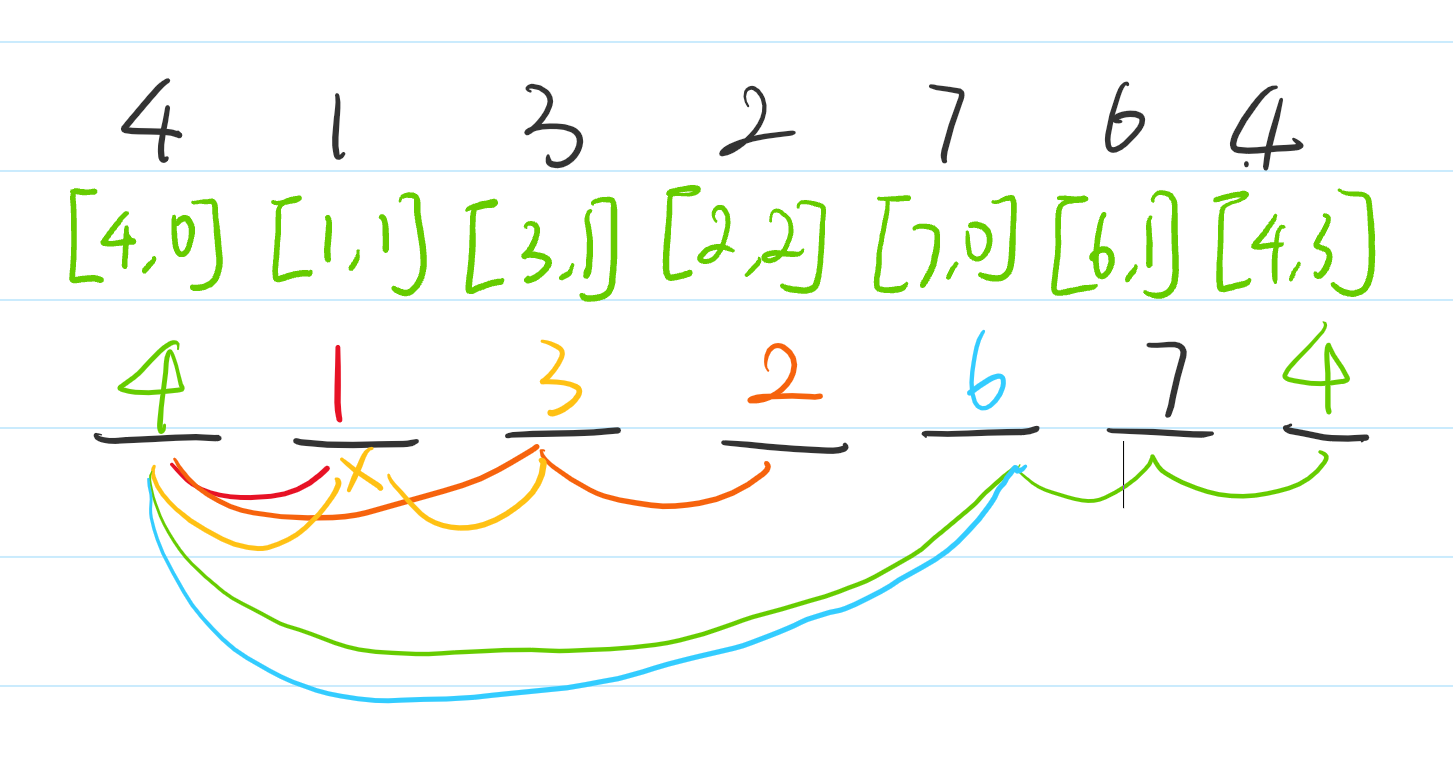 4 1 3 2 7 6 4
[4,0] [1,1] [3,1] [2,2] [7,0] [6,1] [4,3]
4 1 3 2 6 7 4
X